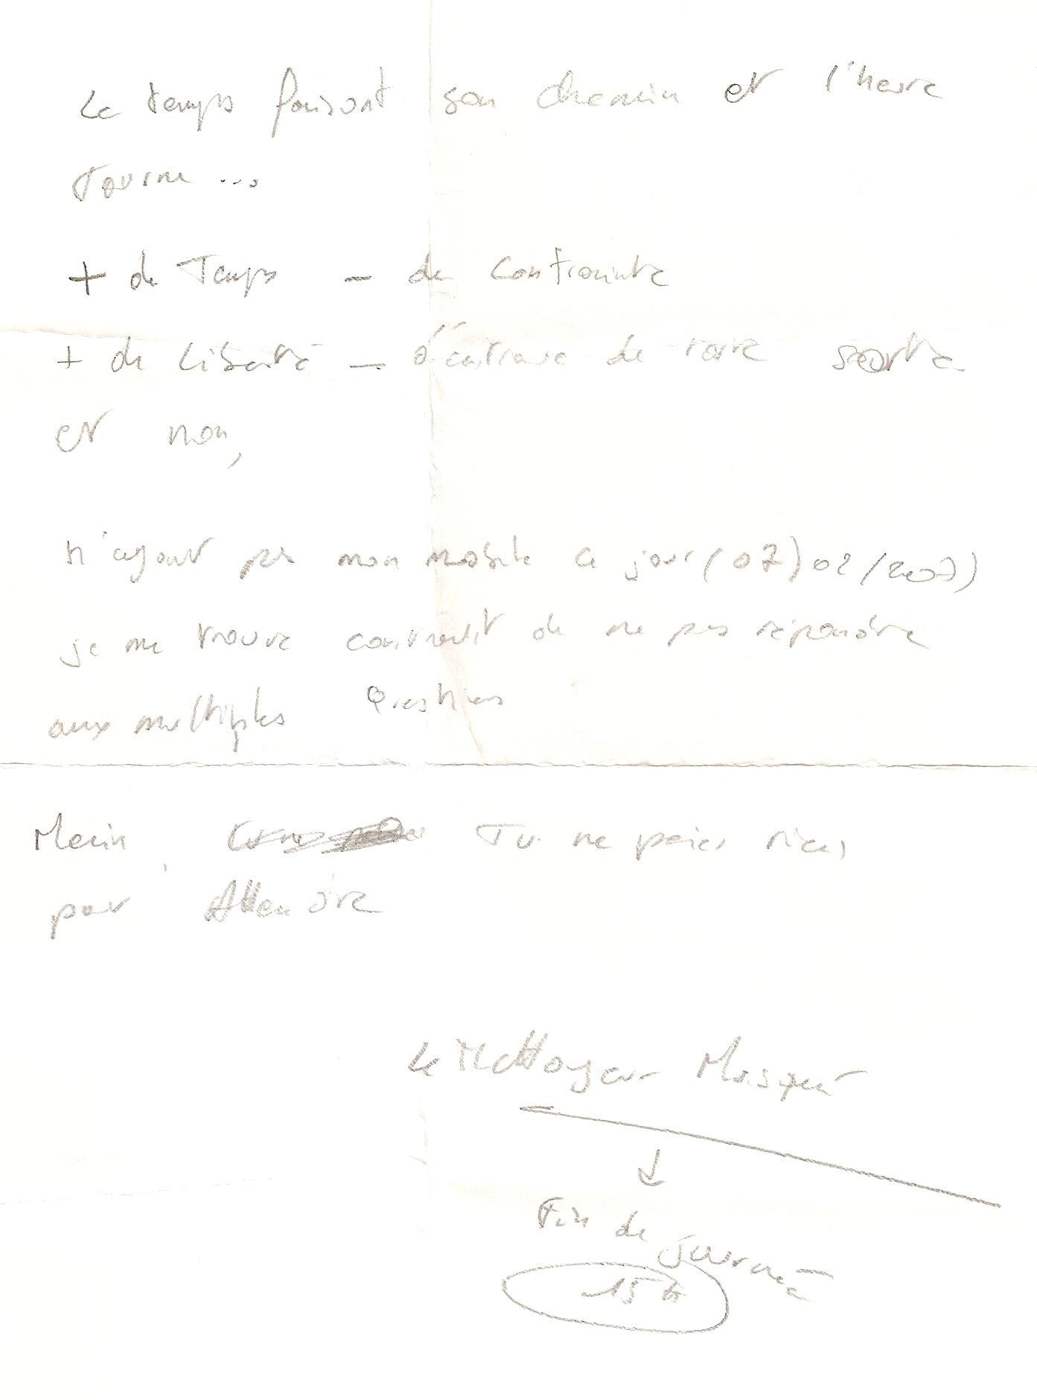 Le temps faisant son chemin et l'heure
tourne ...
+ de Temps - de Contrainte
+ de Liberté - d'entrave de toute sorte
et non,
n'ayant pas mon mobile ce jour (07/02/2007)
je me trouve contraint de ne pas répondre
aux multiples Questions
Merci, Tu ne paies rien
pour Attendre
Le Nettoyeur Masqué
↓
Fin de journée
15 h